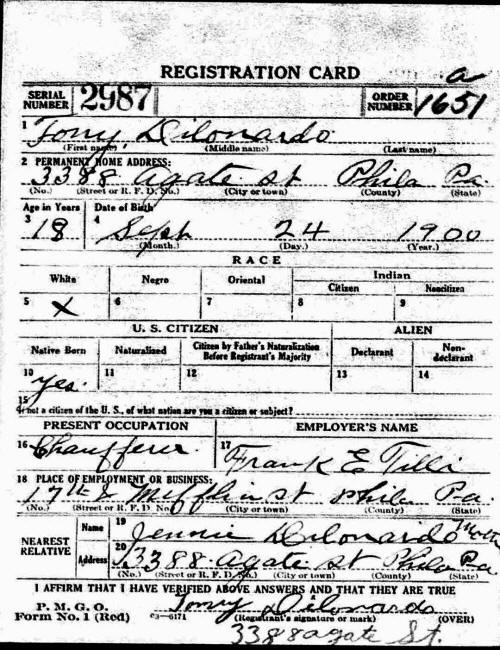 REGISTRATION CARD a
SERIAL NUMBER 2987 ORDER NUMBER 1651
1 Tony Dilonardo
(First name) (Middle name) (Last name)
2 PERMANENT HOME ADDRESS:
3388 Agate st Phila Pa
(No.) (Street or R. F. D. No.) (City or town) (County) (State)
Age in Years Date of Birth
3 18 4 Sept 24 1900
(Month.) (Day.) (Year.)
RACE
White Negro Oriental Indian
Citizen Noncitizen
5 X 6 7 8 9
U. S. CITIZEN ALIEN
Native Born Naturalized Citizen by Father's Naturalization Before Registrant's Majority Declarant Non-declarant
10 yes. 11 12 13 14
15
If not a citizen of the U. S., of what nation are you a citizen or subject?
PRESENT OCCUPATION EMPLOYER'S NAME
16 Chaufferer 17 Frank E Tilli
18 PLACE OF EMPLOYMENT OR BUSINESS:
17th & Mifflin st Phila Pa.
(No.) (Street or R. F. D. No.) (City or town) (County) (State)
NEAREST RELATIVE Name 19 Jennie Dilonardo
Address 20 3388 Agate st Phila Pa
(No.) (Street or R. F. D. No.) (City or town) (County) (State)
I AFFIRM THAT I HAVE VERIFIED ABOVE ANSWERS AND THAT THEY ARE TRUE
P. M. G. O.
Form No. 1 (Red) 03—6171 Tony Dilonardo
(Registrant's signature or mark) (OVER)
3388 agate St.